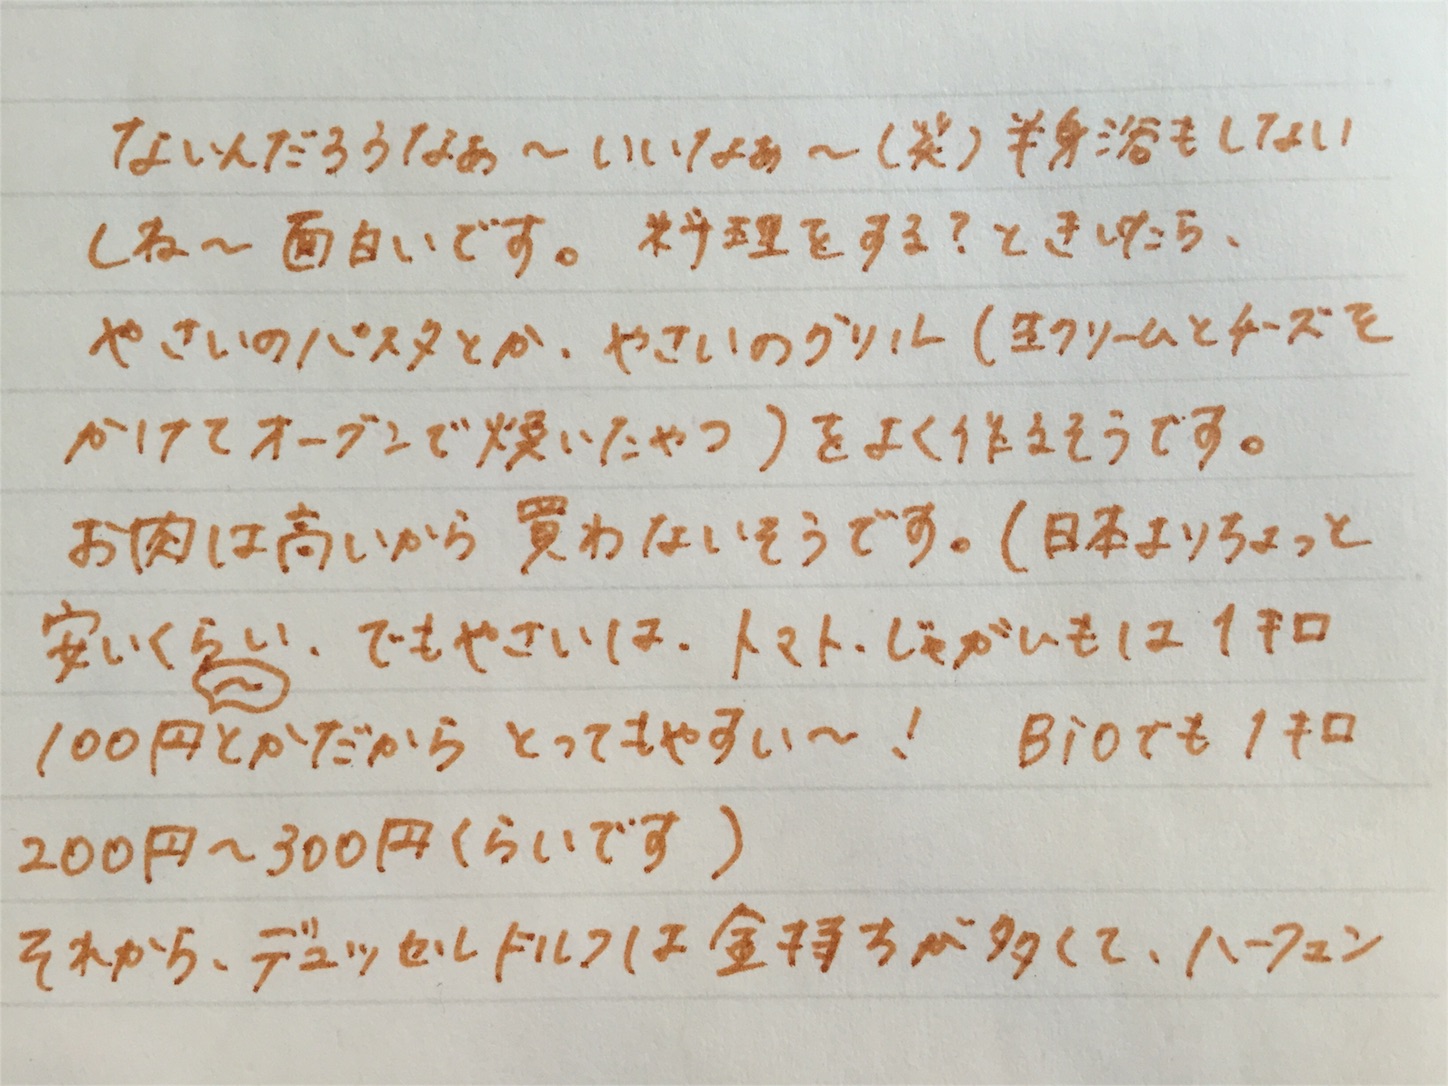 ないんだろうなぁ〜いいなぁ〜(笑)半身浴もしない
しね〜面白いです。料理をする?ときいたら、
やさいのパスタとか、やさいのグリル(生クリームとチーズを
かけてオーブンで焼いたやつ)をよく作るそうです。
お肉は高いから買わないそうです。(日本よりちょっと
安いくらい、でもやさいは、トマト、じゃがいもは1キロ
〜
100円とかだからとってもやすい〜! Bioでも1キロ
200円〜300円くらいです)
それから、デュッセルドルフは金持ちが多くて、ハーフェン